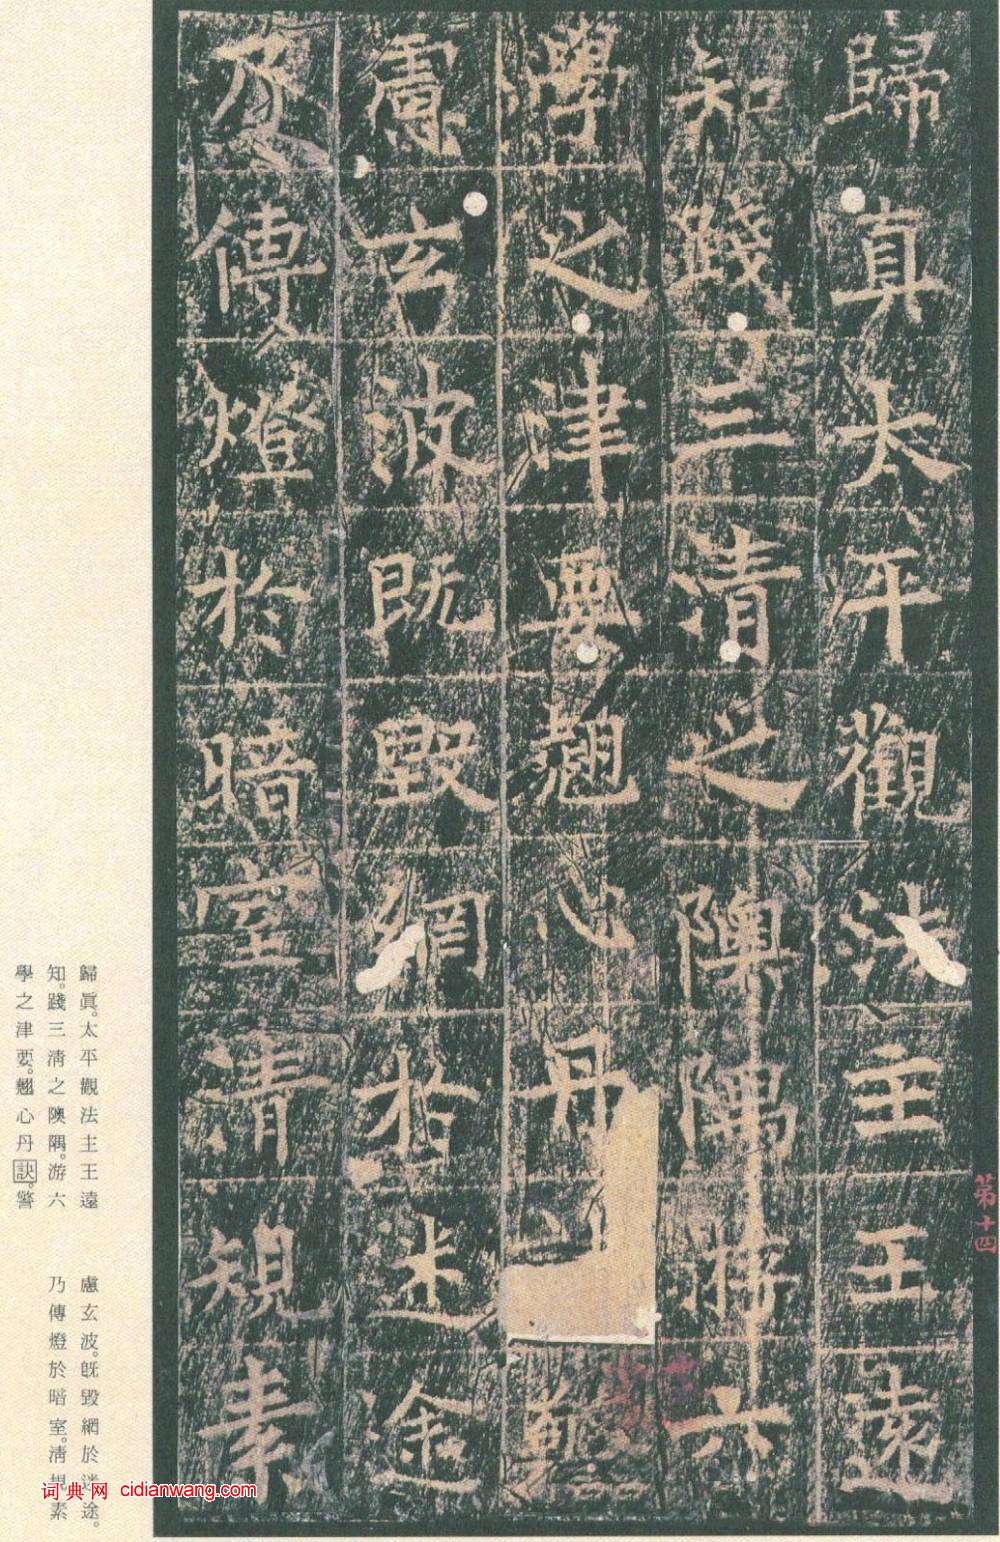 歸真太平觀法主王遠
知踐三清之隩隅游六
學之津要翹心丹警
慮玄波既毀網於迷途
乃傳燈於暗室清規素
第十四
歸眞。太平觀法主王遠
知。踐三清之隩隅。游六
學之津要。翹心丹訣。警
慮玄波。旣毀網於迷途。
乃傳燈於暗室。清規素
词典网 cidianwang.com